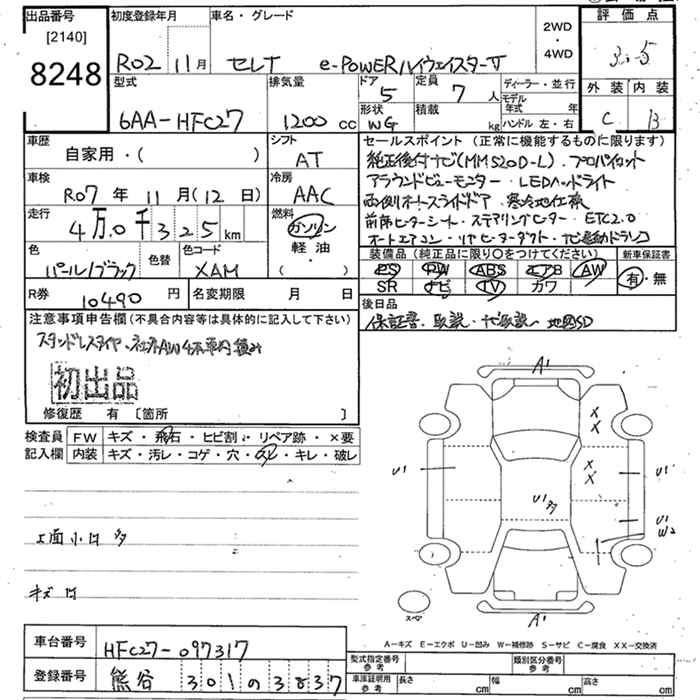 出品番号
[2140]
8248
初度登録年月
R02 11月
車名・グレード
セレナ e-POWERハイウェイスターV
2WD
・
4WD
評価点
3.5
外装 内装
C B
型式
6AA-HFC27
排気量
1200 cc
ドア
5
形状
WG
定員
7 人
積載
kg
ディーラー・並行
モデル
年式 年
ハンドル 左・右
車歴
自家用・( )
シフト
AT
車検
R07 年 11月 (12 日)
冷房
AAC
走行
4万0千325km
燃料
ガソリン
軽油
( )
色
パール/ブラック
色替
色コード
XAM
R券
10490 円
名変期限 月 日
セールスポイント (正常に機能するものに限ります)
純正後付ナビ(MM520D-L)・プロパイロット
アラウンドビューモニター・LEDヘッドライト
両側オートスライドドア・寒冷地仕様
前席ヒーターシート・ステアリングヒーター・ETC2.0
オートエアコン・リヤヒーターダクト・ナビ連動ドラレコ
装備品 (純正品に限り○をつけてください)
PS PW ABS エアB AW
SR ナビ TV カワ
新車保証書
有・無
後日品
保証書・取説・ナビ取説・地図SD
注意事項申告欄(不具合内容等は具体的に記入して下さい)
スタッドレスタイヤ・社外AW4本車内積み
初出品
修復歴 有 〔箇所 〕
検査員
記入欄
FW キズ・飛石・ヒビ割・リペア跡・×要
内装 キズ・汚レ・コゲ・穴・スレ・キレ・破レ
上面小凹多
キズ凹
A1
X
X
X
X
U1
U1
U1
多
U1
W2
スペア
A1
A=キズ E=エクボ U=凹み W=補修跡 S=サビ C=腐食 XX=交換済
車台番号
HFC27-097317
登録番号
熊谷 301 の 3837
型式指定番号
参考
類別区分番号
参考
車庫証明用
参考
長さ cm 幅 cm 高さ cm